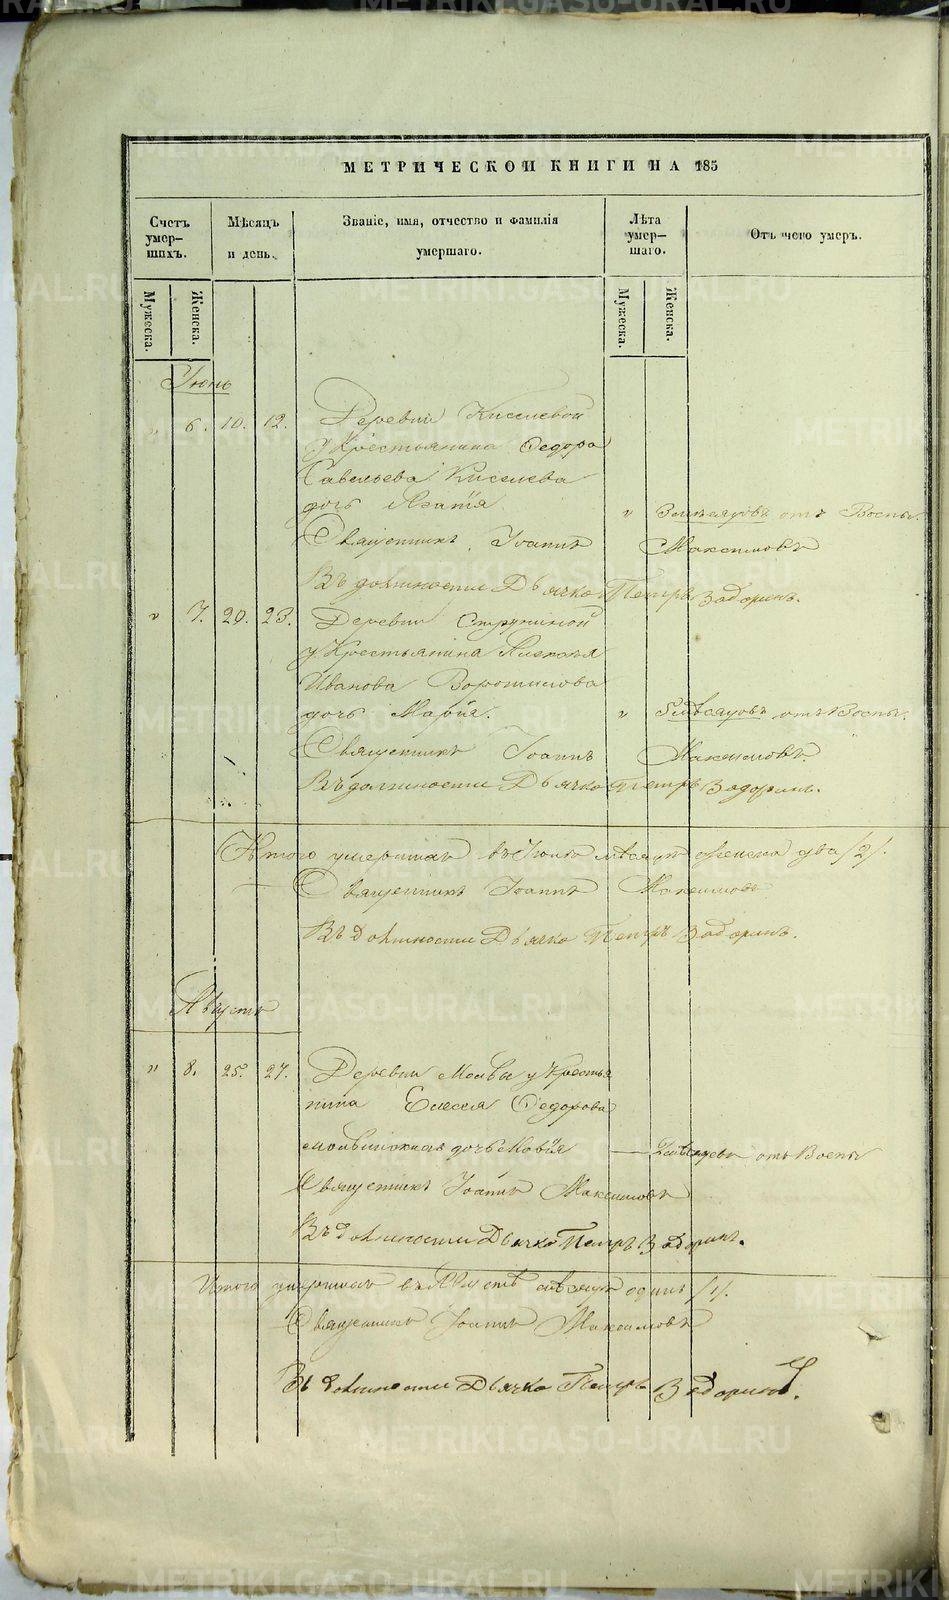 METRIKI.GASO-URAL.RU
МЕТРИЧЕСКОЙ КНИГИ НА 185
Счетъ умер-шихъ.
Мѣсяцъ и день.
Званіе, имя, отчество и фамилія умершаго.
Лѣта умер-шаго.
Отъ чего умеръ.
Мужеска.
Женска.
Мужеска.
Женска.
Іюнь
" 6. 10. 12. Деревни Киселевой
у Крестьянина Федора
Савельева Киселева
дочь Агатія " мѣсяцовъ отъ Воспы.
Священникъ Іоаннъ Максимовъ
Въ должности Дьячка Петръ Задоринъ.
" 7. 20. 23. Деревни
у Крестьянина Алексѣя
Иванова Ворошилова
дочь Марія. " 5 мѣсяцовъ отъ Воспы.
Священникъ Іоаннъ Максимовъ.
Въ должности Дьячка Петръ Задоринъ.
Итого умершихъ въ мѣсяцѣ женска два /2/.
Священникъ Іоаннъ Максимовъ
Въ должности Дьячка Петръ Задоринъ.
Августъ
" 8. 25. 27. Деревни Молвы у Крестья
нина Елесея Федорова
дочь — отъ Воспы
Священникъ Іоаннъ Максимовъ
Въ должности Дьячка Петръ Задоринъ.
Итого умершихъ въ Августѣ мѣсяцѣ одинъ /1/.
Священникъ Іоаннъ Максимовъ
Въ должности Дьячка Петръ Задоринъ.